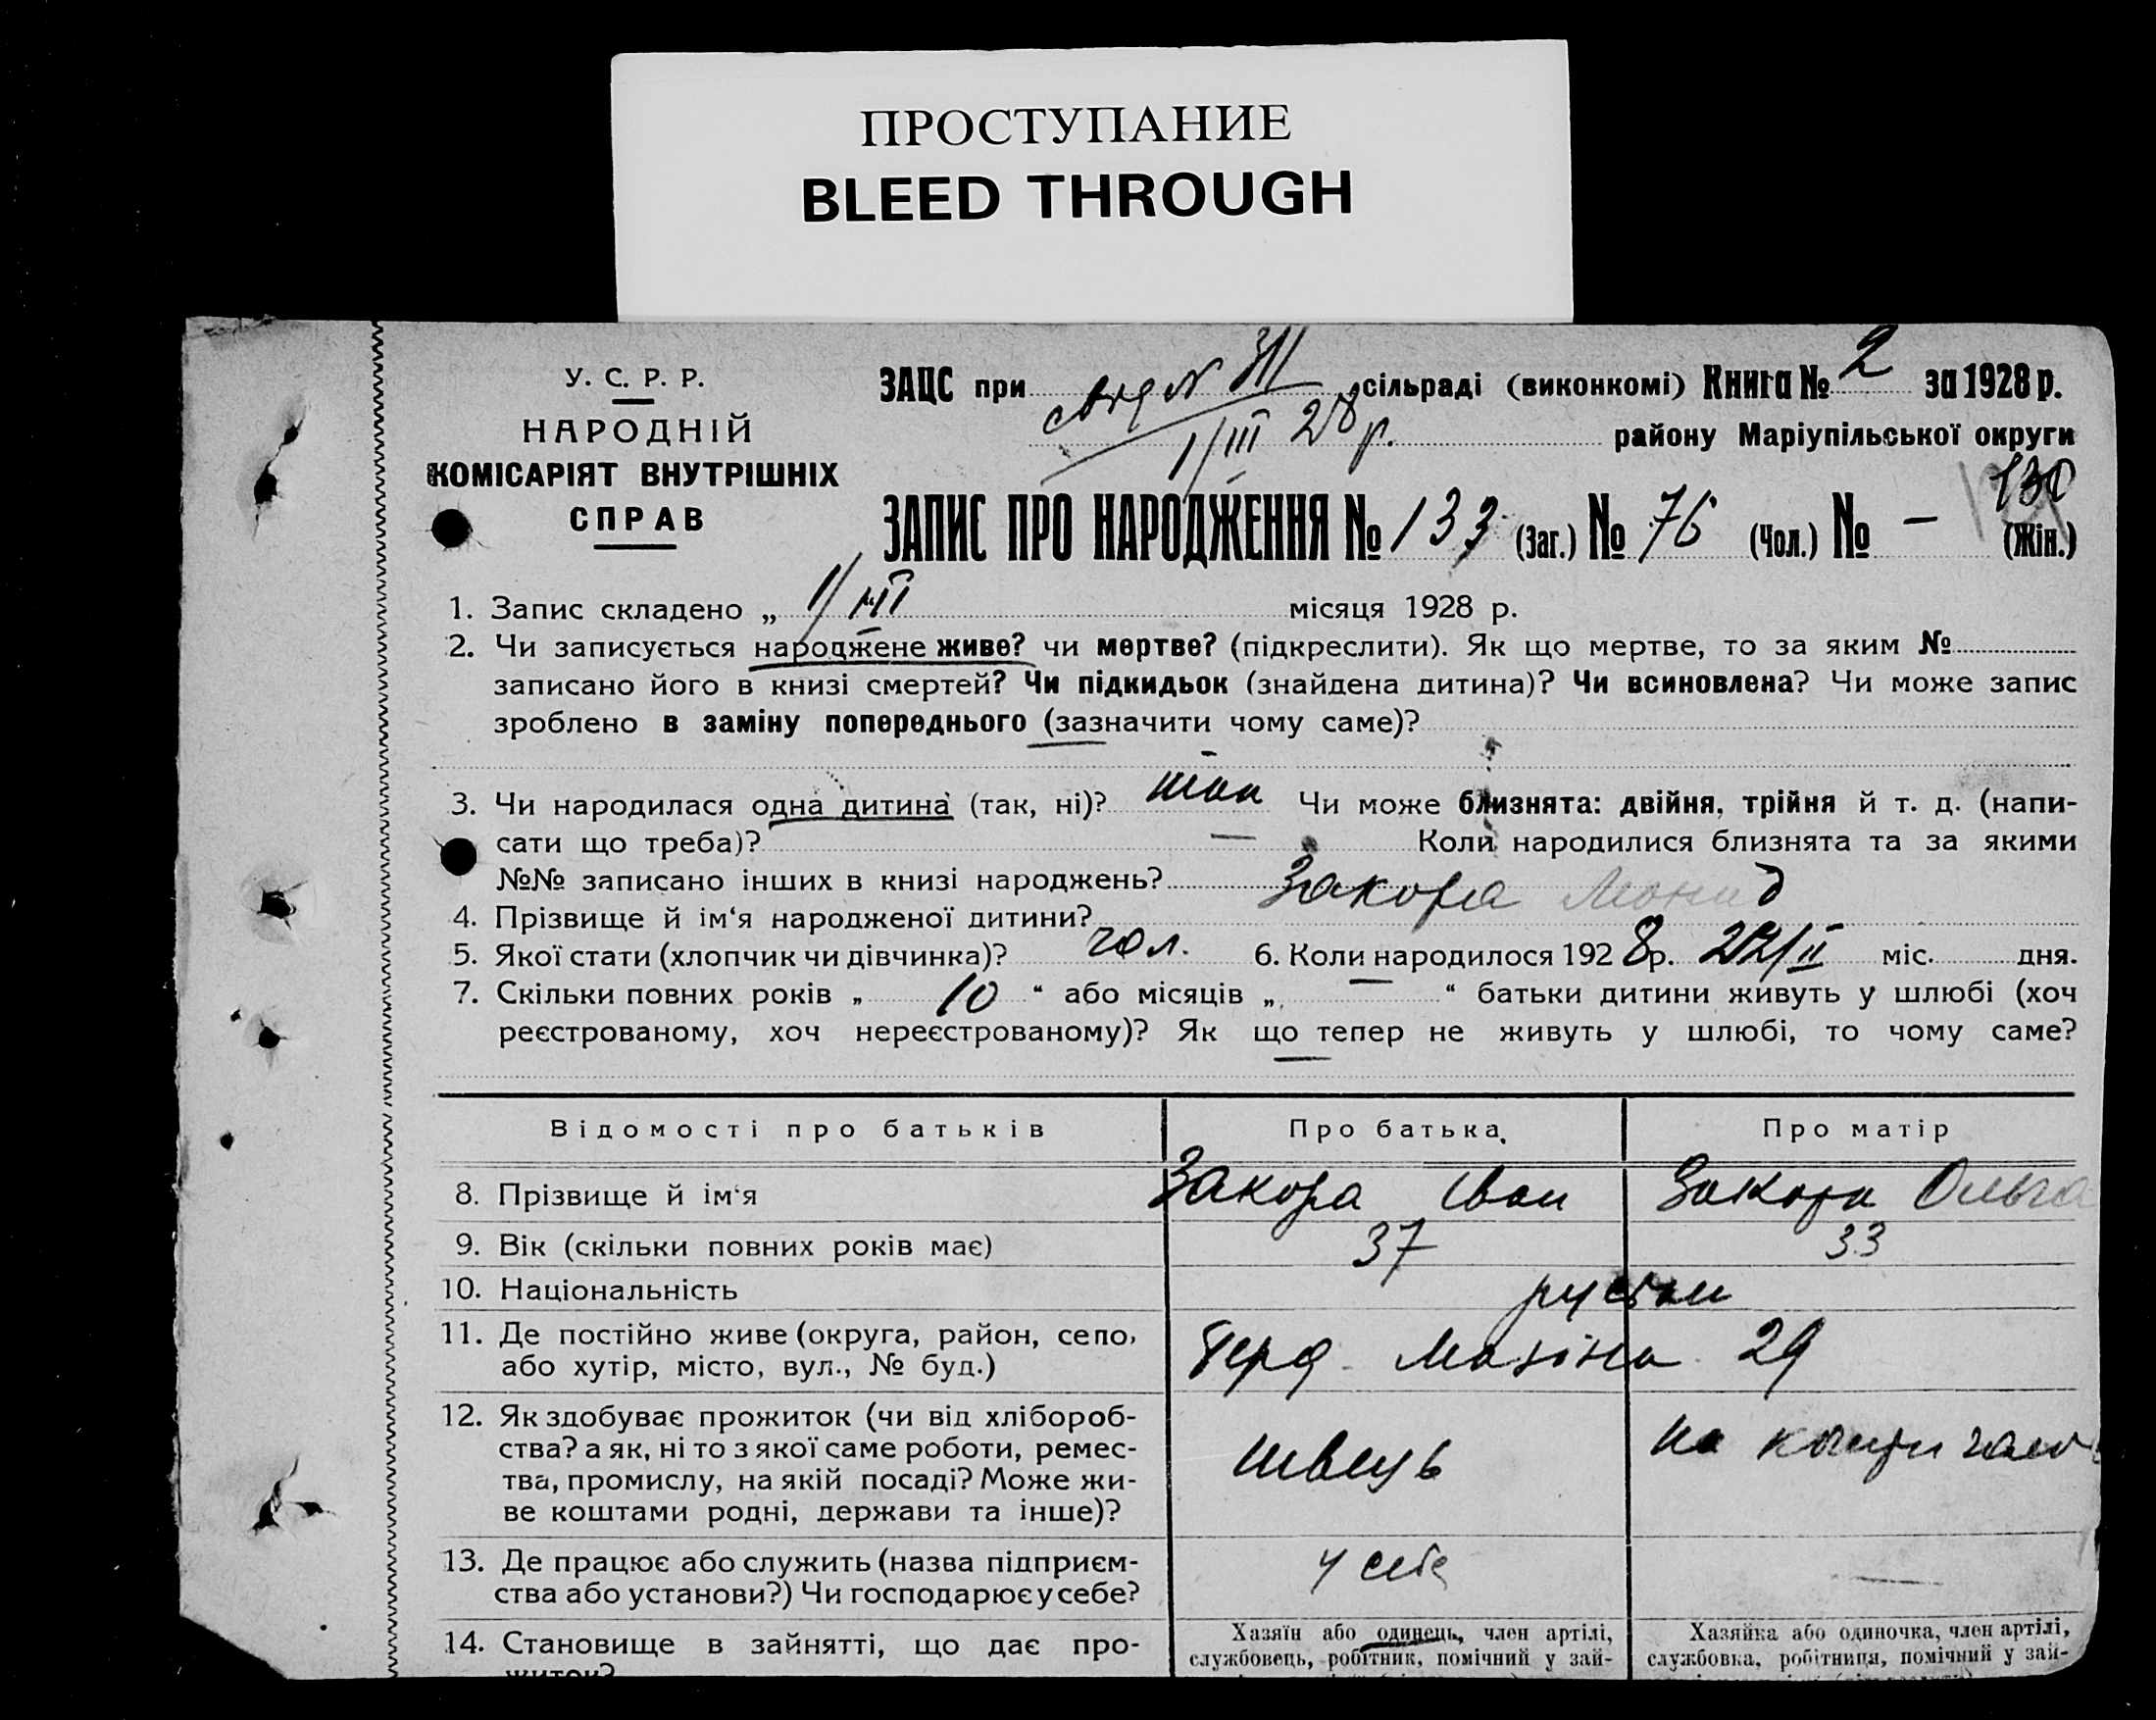 ПРОСТУПАНИЕ
BLEED THROUGH
У. С. Р. Р.
НАРОДНІЙ
КОМІСАРІЯТ ВНУТРІШНІХ
СПРАВ
ЗАЦС при сільраді (виконкомі) Книга № 2 за 1928 р.
1/III 28 р. району Маріупільської округи
ЗАПИС ПРО НАРОДЖЕННЯ № 133 (Заг.) № 76 (Чол.) № — (Жін.)
1. Запис складено „ 1/III місяця 1928 р.
2. Чи записується народжене живе? чи мертве? (підкреслити). Як що мертве, то за яким №
записано його в книзі смертей? Чи підкидьок (знайдена дитина)? Чи всиновлена? Чи може запис
зроблено в заміну попереднього (зазначити чому саме)?
3. Чи народилася одна дитина (так, ні)? так Чи може близнята: двійня, трійня й т. д. (напи-
сати що треба)? — Коли народилися близнята та за якими
№№ записано інших в книзі народжень?
4. Прізвище й ім‘я народженої дитини? Закора Леонид
5. Якої статі (хлопчик чи дівчинка)? чол. 6. Коли народилося 1928 р. /II міс. дня.
7. Скільки повних років „ 10 “ або місяців „ — “ батьки дитини живуть у шлюбі (хоч
реєстрованому, хоч нереєстрованому)? Як що тепер не живуть у шлюбі, то чому саме?
Відомості про батьків Про батька Про матір
8. Прізвище й ім‘я Закора Іван Закора Ольга
9. Вік (скільки повних років має) 37 33
10. Національність
11. Де постійно живе (округа, район, село, 29
або хутір, місто, вул., № буд.)
12. Як здобуває прожиток (чи від хлібороб-
ства? а як, ні то з якої саме роботи, ремес-
тва, промислу, на якій посаді? Може жи- швець на кошти
ве коштами родні, держави та інше)?
13. Де працює або служить (назва підприєм- у себе —
ства або установи?) Чи господарює у себе?
14. Становище в зайнятті, що дає про- Хазяїн або одинець, член артілі, Хазяйка або одиночка, член артілі,
житок? службовець, робітник, помічний у зай- службовка, робітниця, помічний у зай-